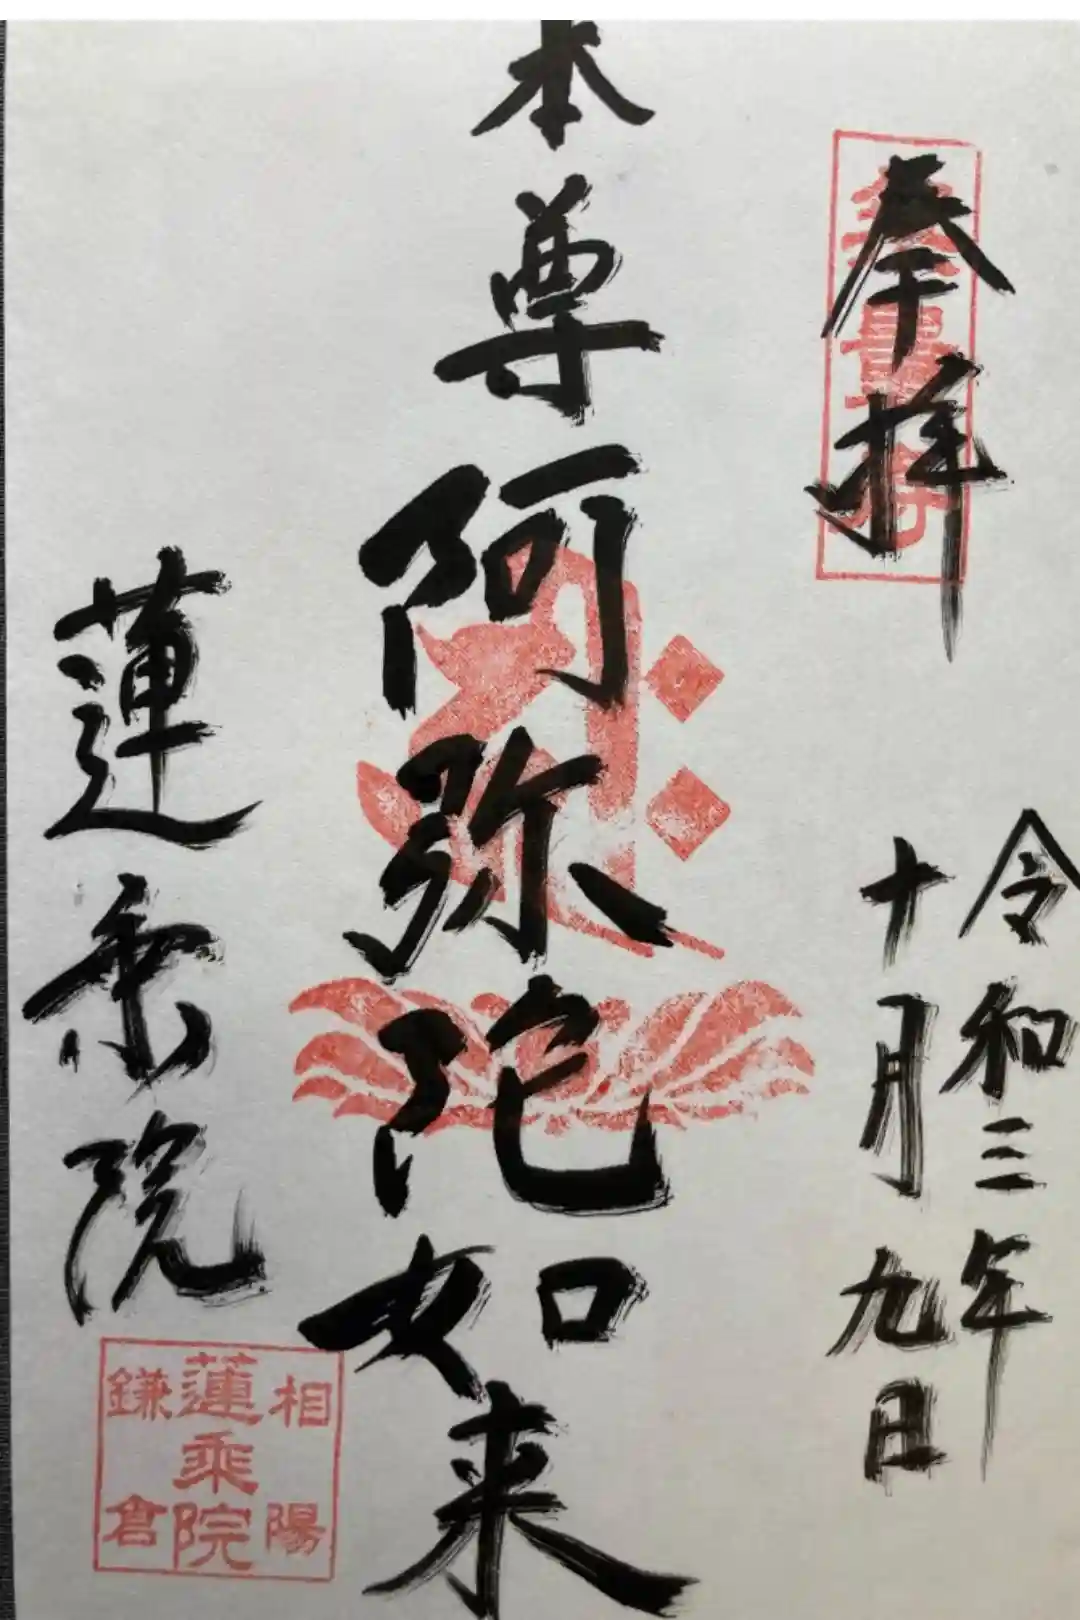 奉拝
令和三年
十月九日
本尊阿弥陀如来
蓮乗院
相陽
蓮乗院
鎌倉